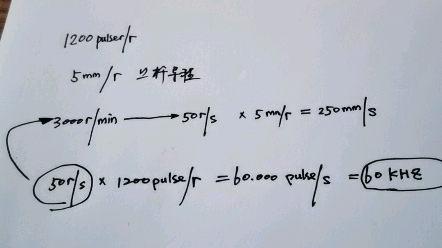 1200 pulser/r
5mm/r 丝杆导程
3000r/min → 50r/s × 5mm/r = 250mm/s
50r/s × 1200pulse/r = 60.000 pulse/s = 60 KHZ